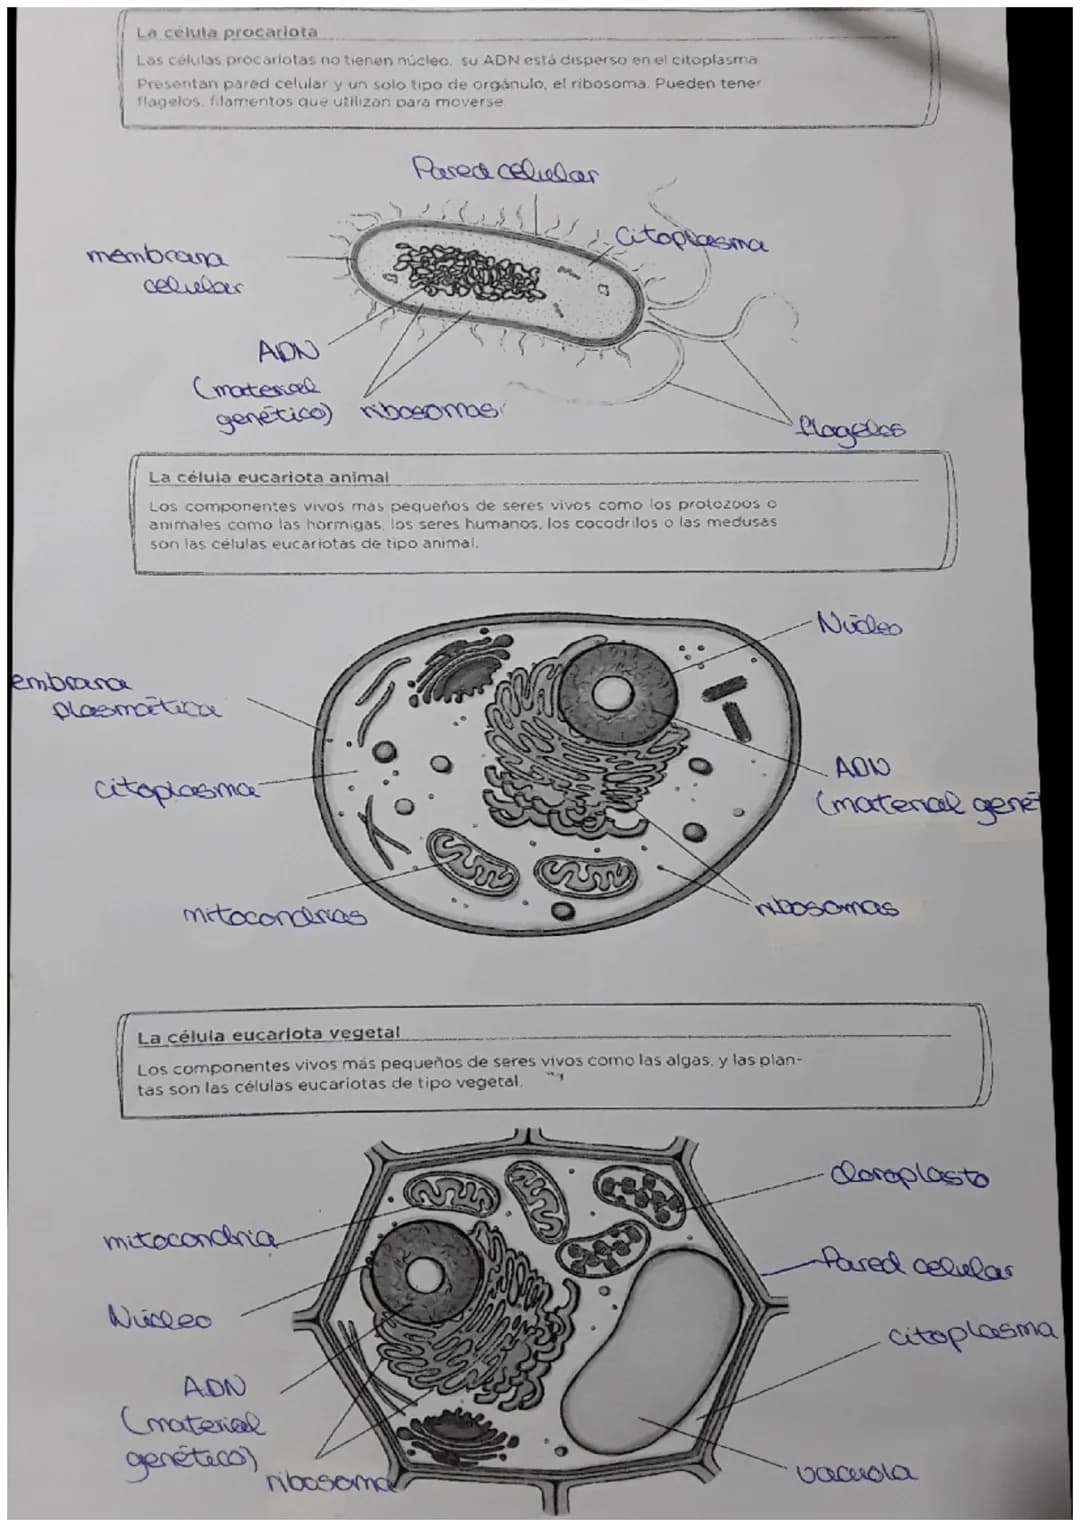 La célula procariota
Las células procariotas no tienen núcleo, su ADN está disperso en el citoplasma.
Presentan pared celular y un solo tipo de orgánulo, el ribosoma. Pueden tener
flagelos, filamentos que utilizan para moverse
Pared celular
Citoplasma
membrana
celular
ADN
(material
genético)
ribosomas
flagelos
La célula eucariota animal
Los componentes vivos más pequeños de seres vivos como los protozoos o
animales como las hormigas, los seres humanos, los cocodrilos o las medusas
son las células eucariotas de tipo animal.
Núcleo
embrana
plasmática
citoplasma
ADN
(material gené
mitocondrias
ribosomas
La célula eucariota vegetal
Los componentes vivos más pequeños de seres vivos como las algas, y las plan-
tas son las células eucariotas de tipo vegetal.
cloroplasto
mitocondria
Pared celular
Núcleo
citoplasma
ADN
(material
genético)
ribosoma
vacuola